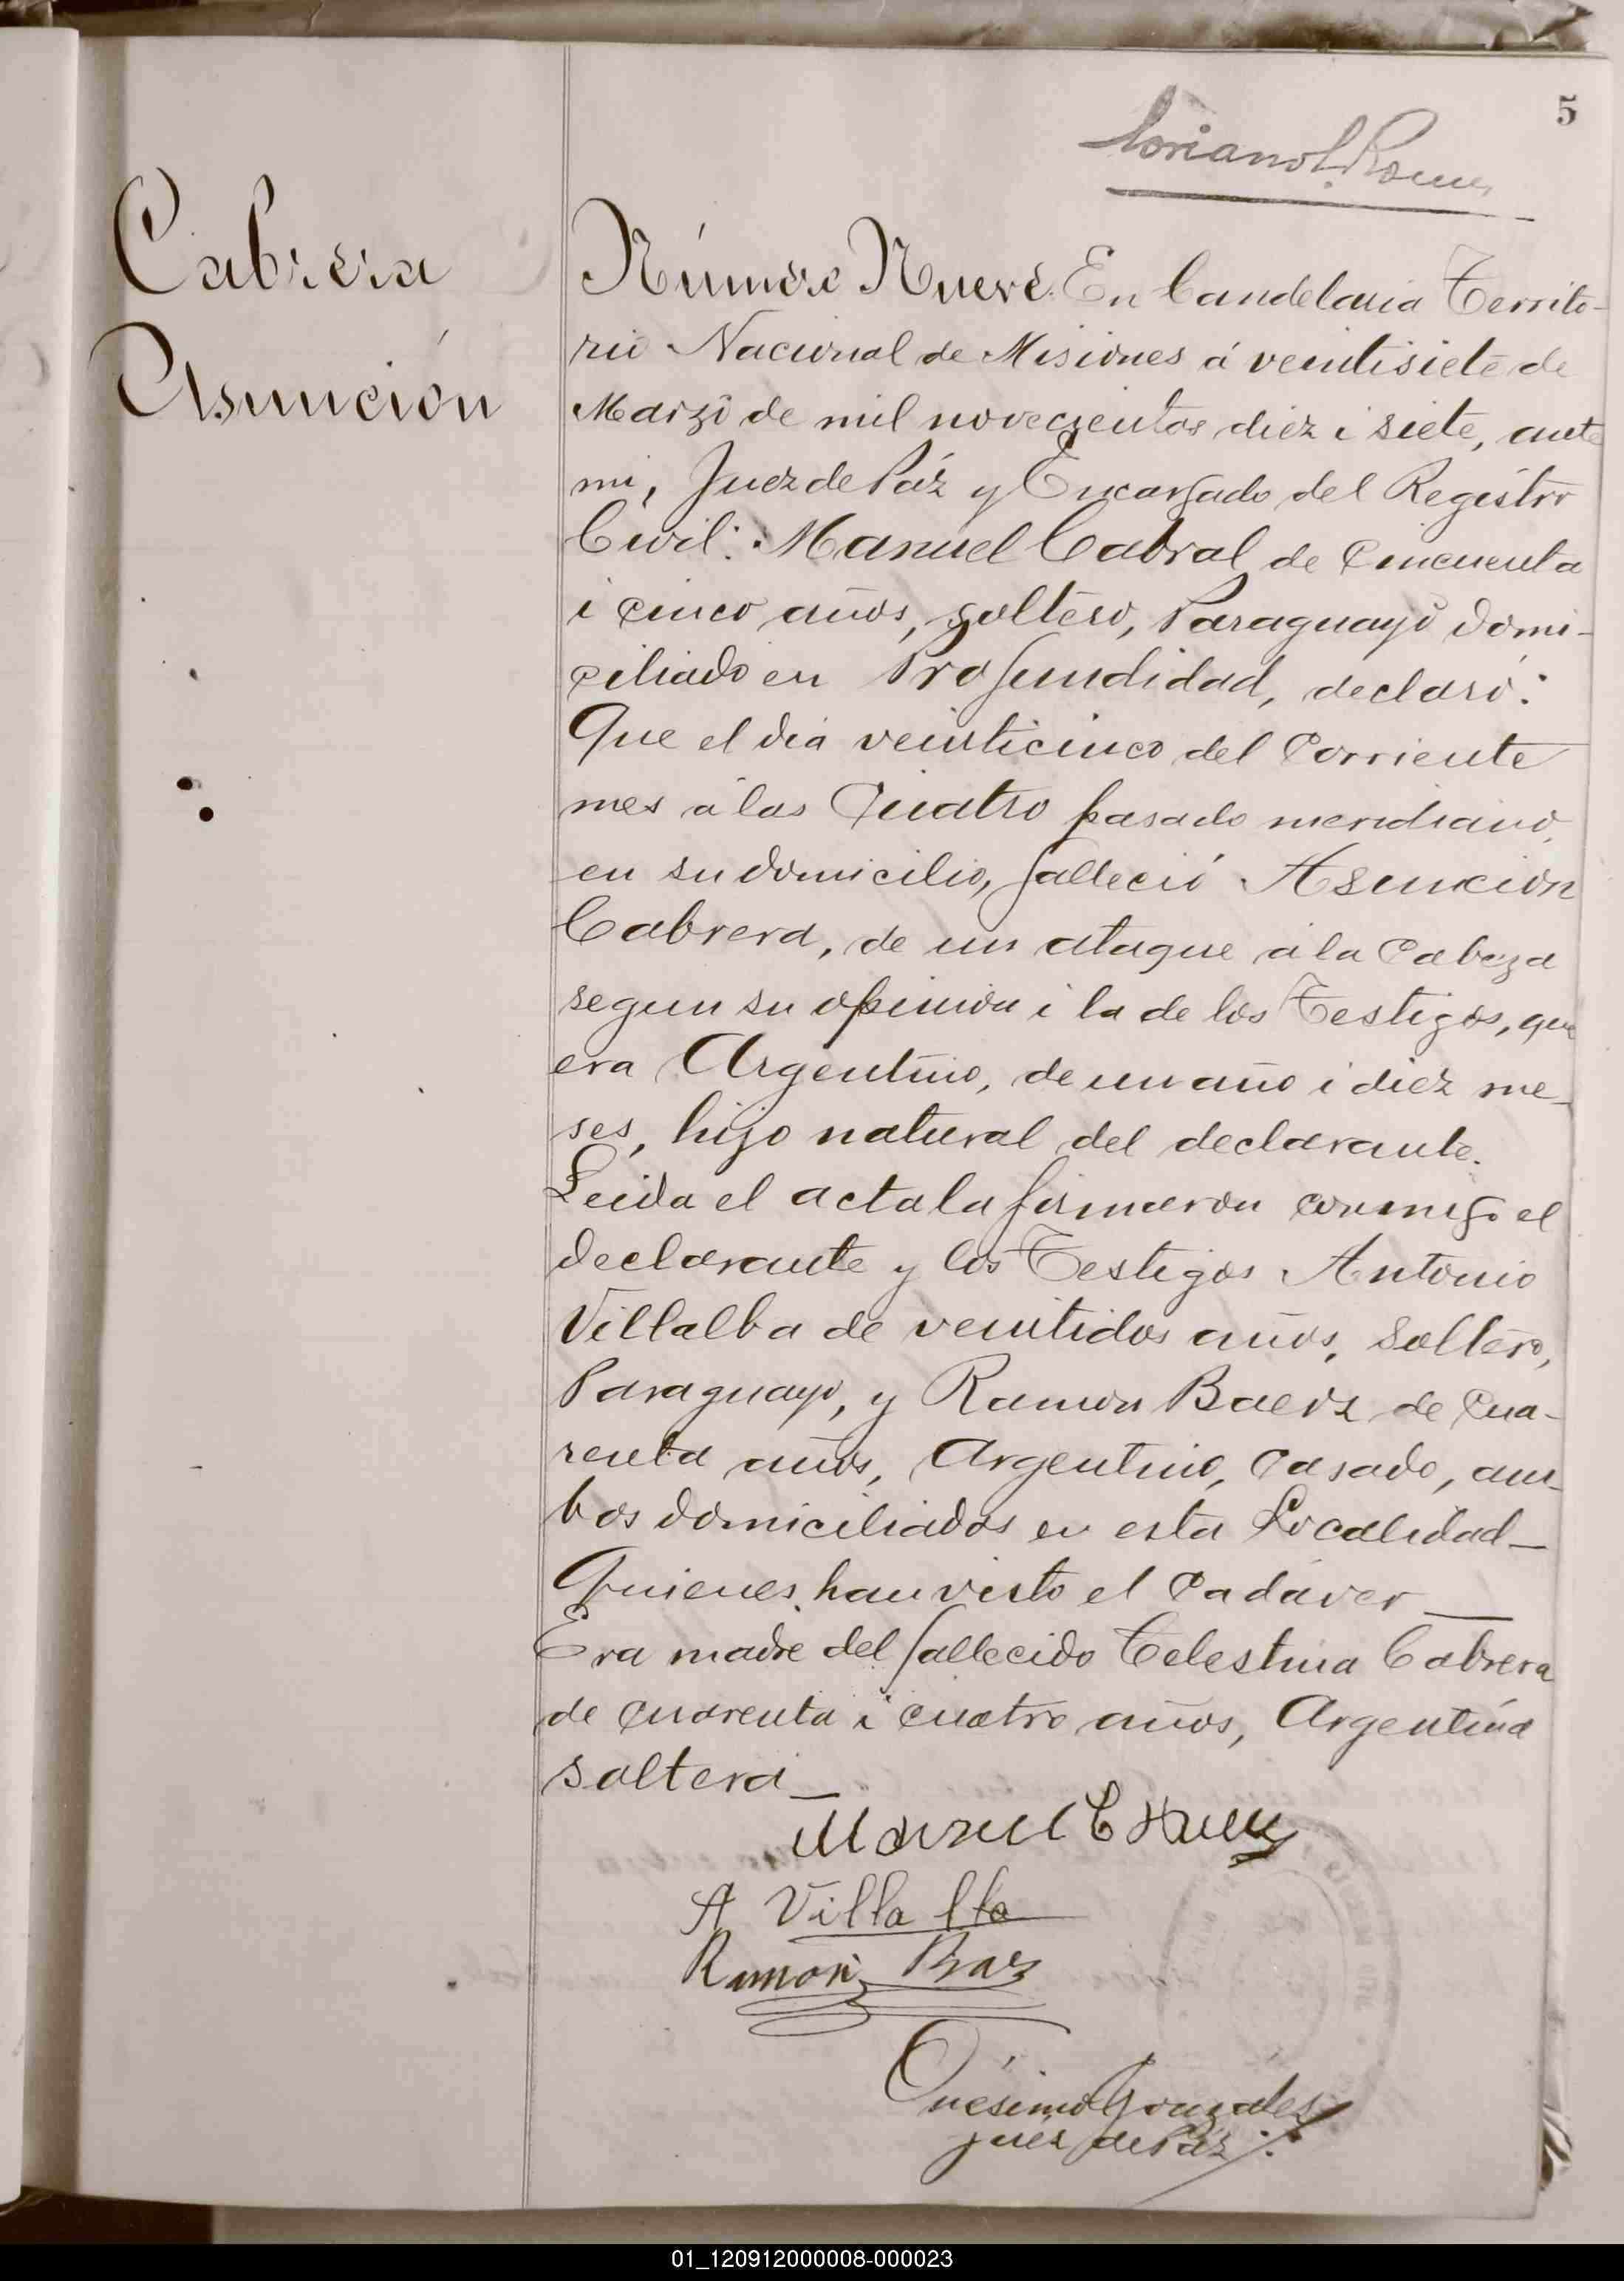 5
Cabrera
Asunción
Número Nueve. En Candelaria Territo-
rio Nacional de Misiones á veintisiete de
Marzo de mil novecientos diez i siete, ante
mi, Juez de Páz y Encargado del Registro
Civil: Manuel Cabral de cincuenta
i cinco años, soltero, Paraguayo domi-
ciliado en Profundidad, declaró:
Que el dia veinticinco del corriente
mes á las cuatro pasado meridiano,
en su domicilio, falleció Asunción
Cabrera, de un ataque á la cabeza
segun su opinion i la de los Testigos, que
era Argentino, de un año i diez me-
ses, hijo natural del declarante.
Leida el acta la firmaron conmigo el
declarante y los Testigos Antonio
Villalba de veintidos años, soltero,
Paraguayo, y Ramon Baez de cua-
renta años, Argentino, casado, am-
bos domiciliados en esta Localidad_
Quienes han visto el cadáver_
Era madre del fallecido Celestina Cabrera
de cuarenta i cuatro años, Argentina
soltera_
Manuel
A Villalba
Ramon Baz
Onésimo Gonzáles
juéz de Páz
01_120912000008-000023